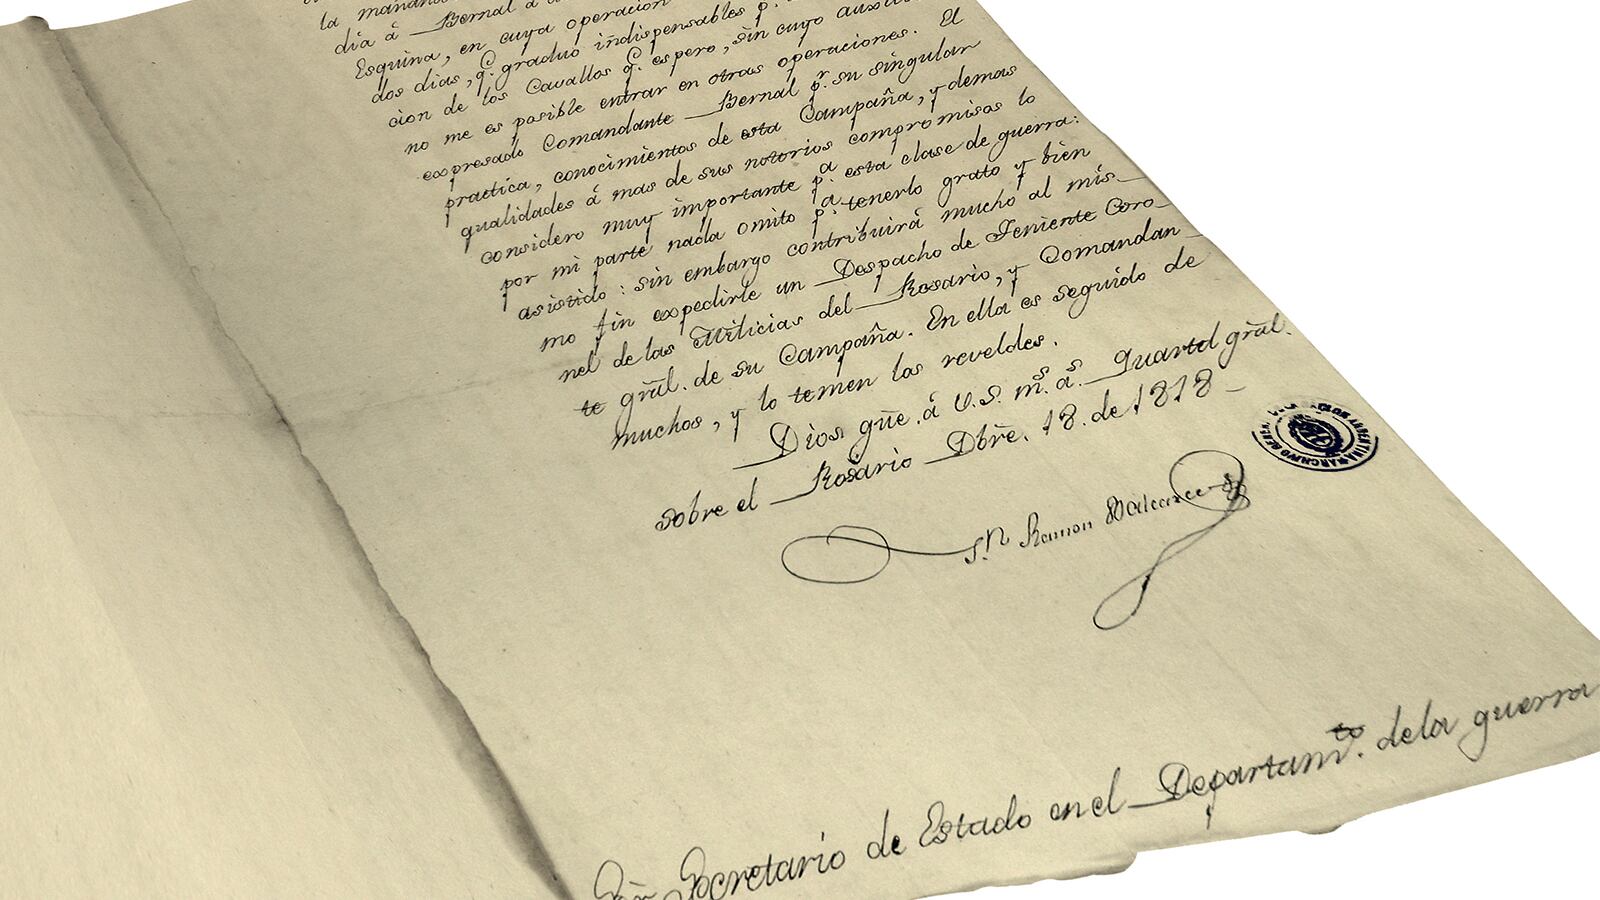 la mañana
dia á Bernal á
Esquina, en cuya operacion
dos dias, q.e graduo indispensables p.
cion de los Cavallos q.e espero, sin cuyo auxilio
no me es posible entrar en otras operaciones. El
expresado Comandante Bernal p.r su singular
practica, conocimientos de esta Campaña, y demas
qualidades á mas de sus notorios compromisos lo
considero muy importante p.a esta clase de guerra:
por mi parte nada omito p.a tenerlo grato y bien
asistido: sin embargo contribuirá mucho al mis-
mo fin expedirle un Despacho de Teniente Coro-
nel de las Milicias del Rosario, y Comandan-
te gral. de su Campaña. En ella es seguido de
muchos, y lo temen los reveldes.
Dios gũe. á V.S. m.s a.s Quartel gral.
sobre el Rosario Dbre. 18. de 1818-
J.n Ramon Balcarce
ARCHIVO GENERAL DE LA NACION ARGENTINA
Sor Secretario de Estado en el Departam.to de la guerra